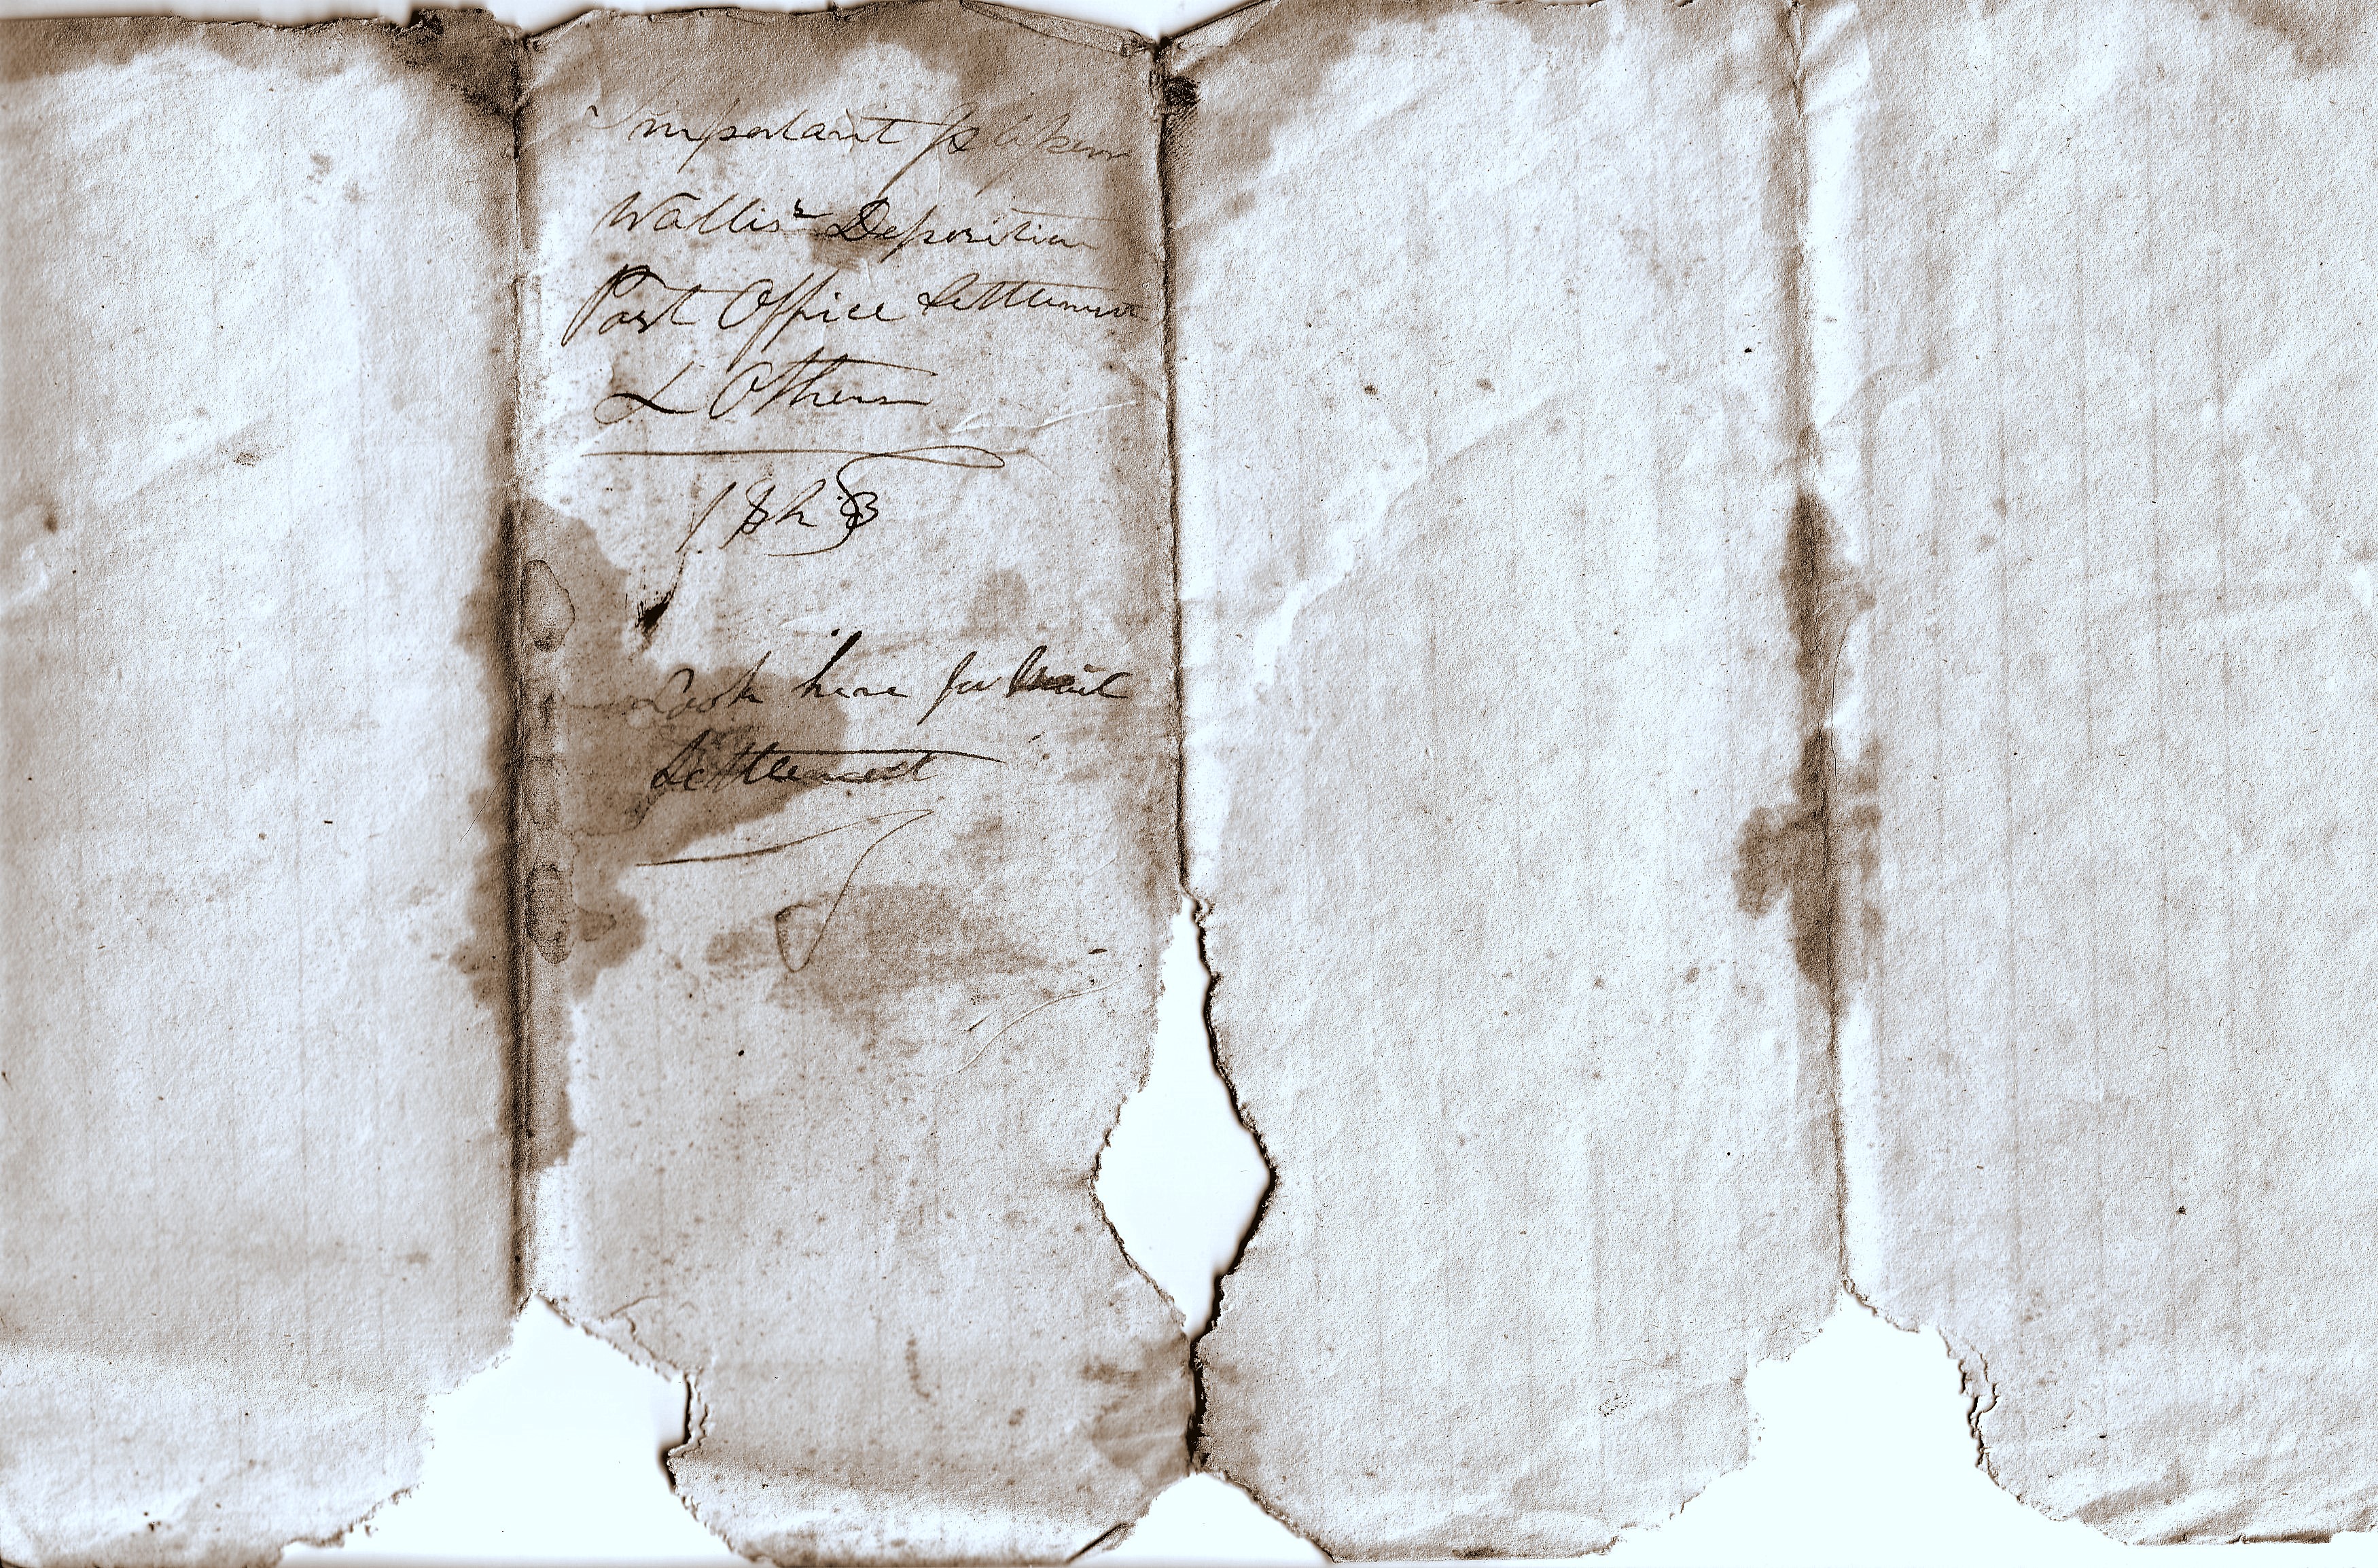 Important papers
Wallis's Deposition
Post Office Settlement
& Others
Look here for Mail
Settlement